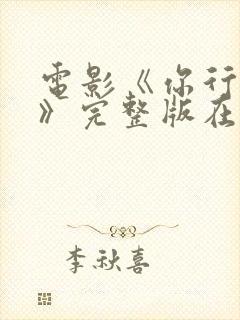 電影《你行
》完整版在
李秋喜